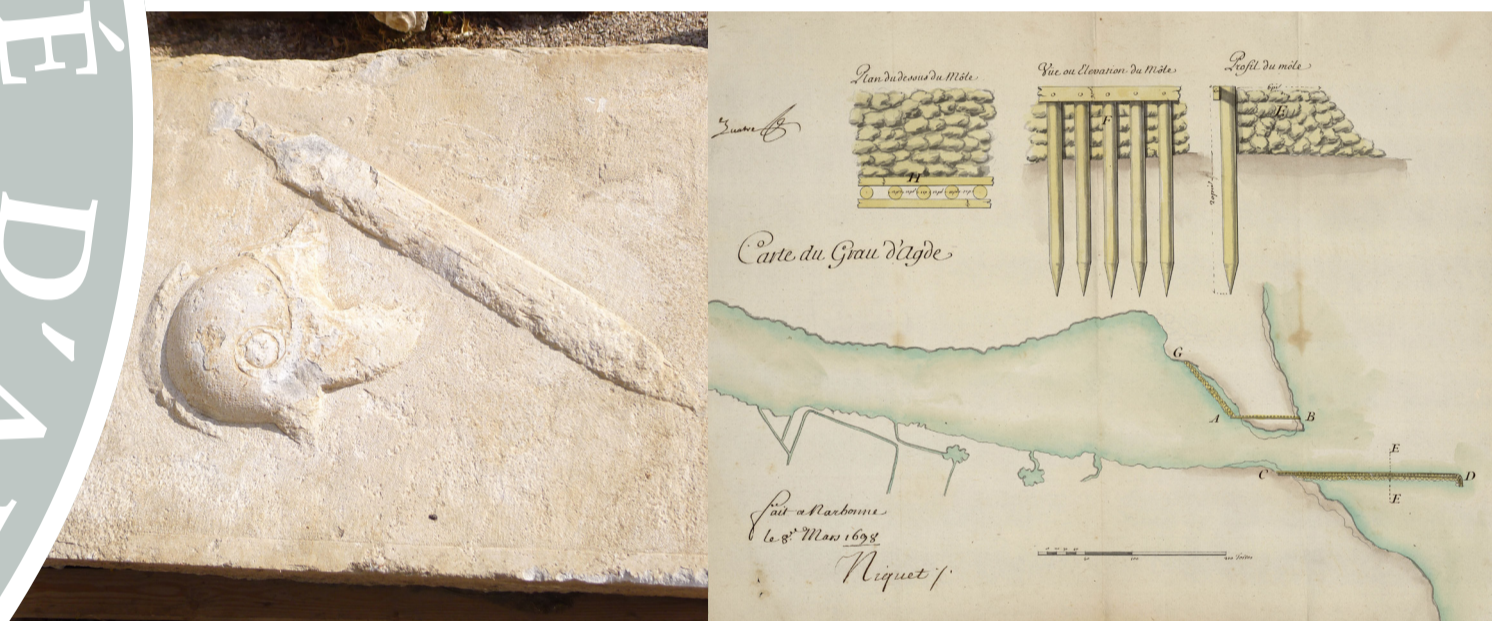 É D'A
Plan du dessus du Môle
Vüe ou Elevation du Môle
Profil du môle
F
E
H
Carte du Grau d'Agde
G
A
B
E
C
D
E
fait a Narbonne
le 8e Mars 1698
Niquet